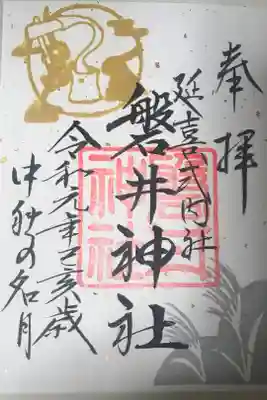 奉拝
延喜式内社
磐井神社
令和元年己亥歳
中秋の名月
磐井神社